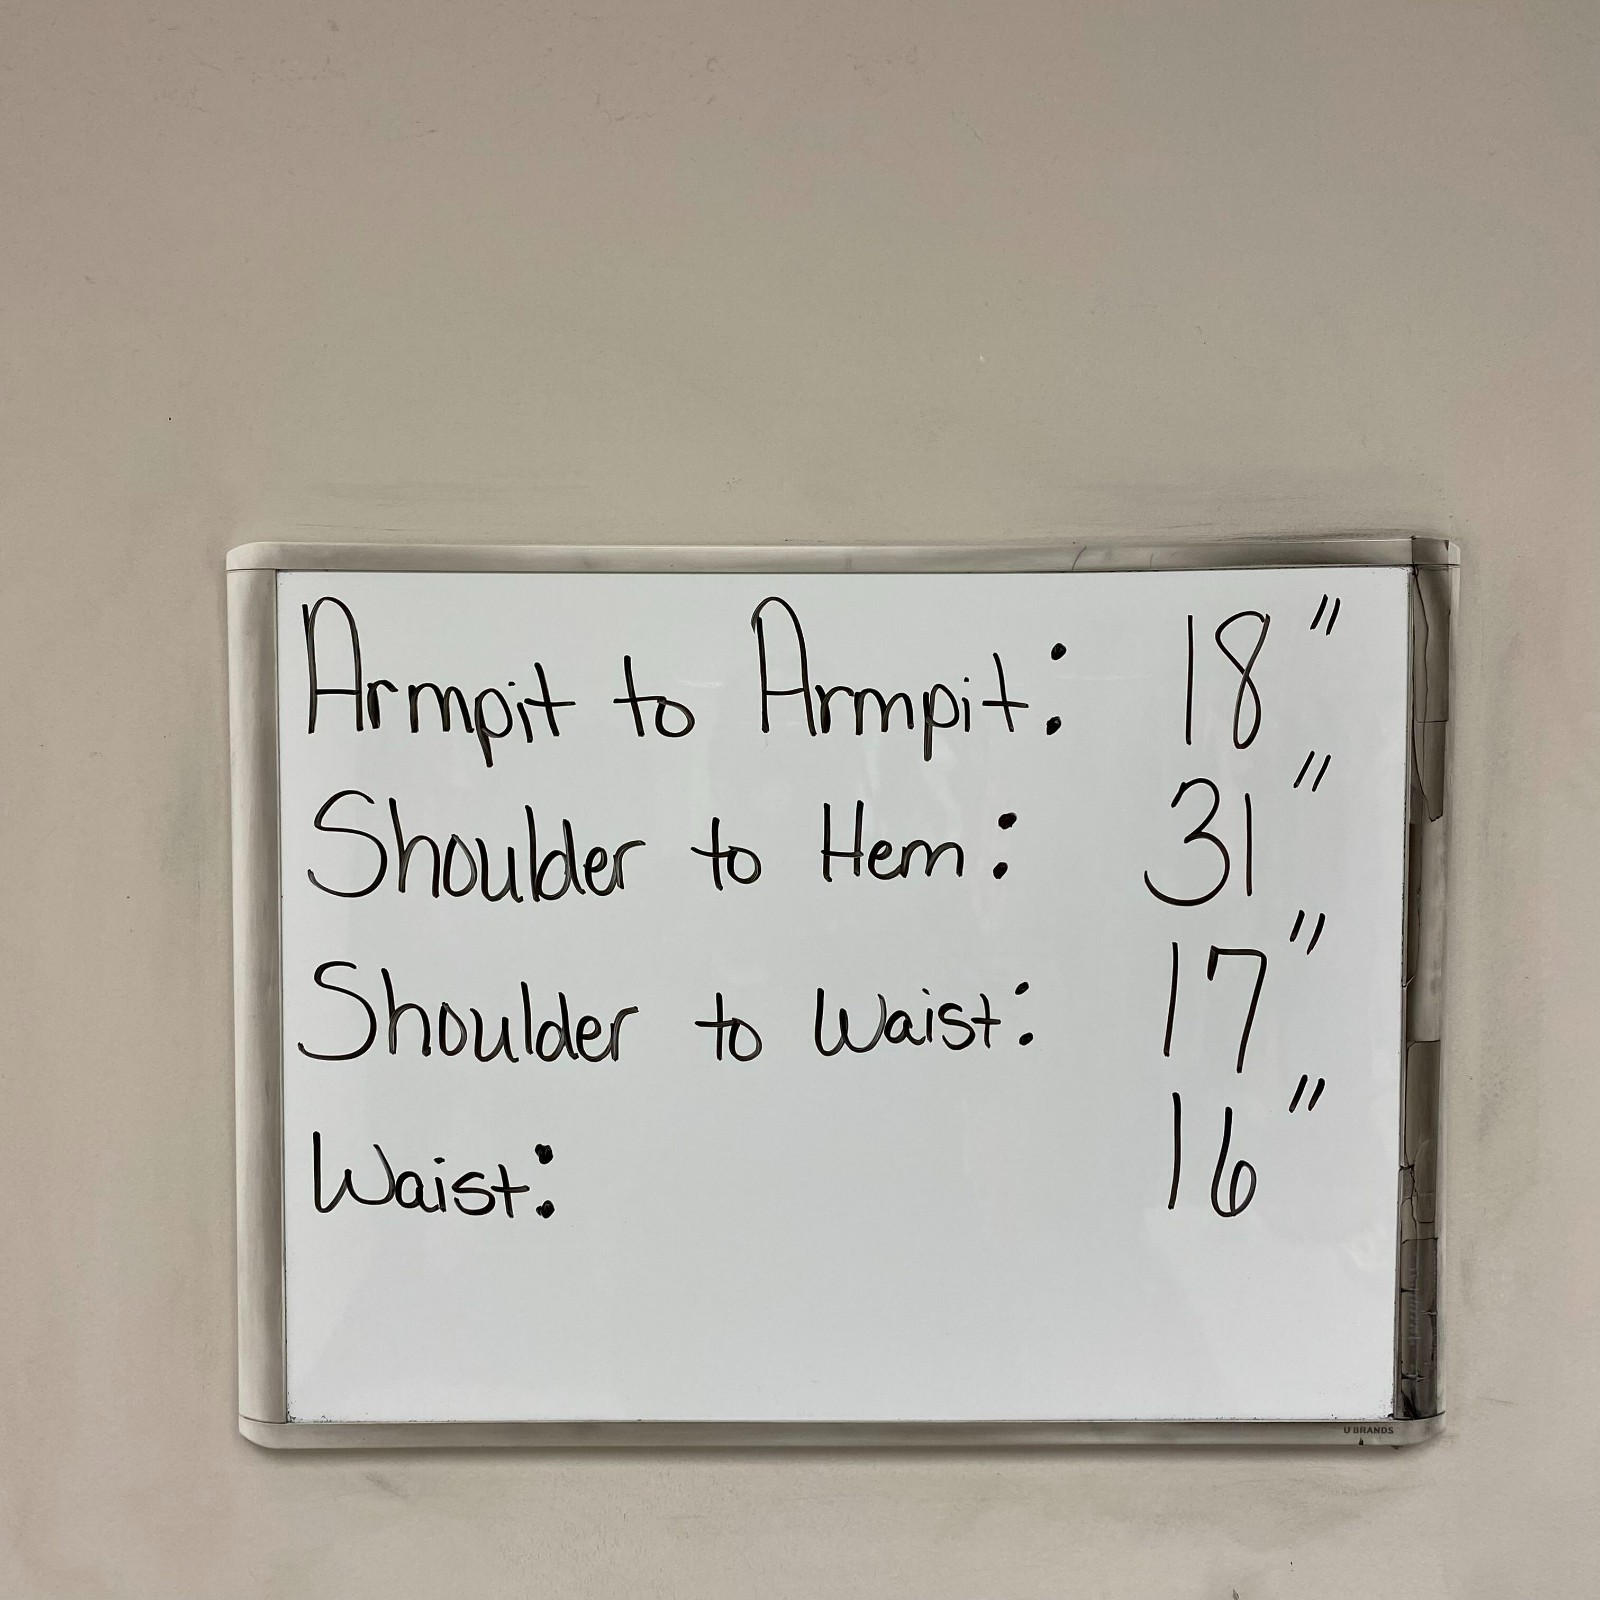 Armpit to Armpit: 18"
Shoulder to Hem: 31"
Shoulder to Waist: 17"
Waist: 16"
U BRANDS